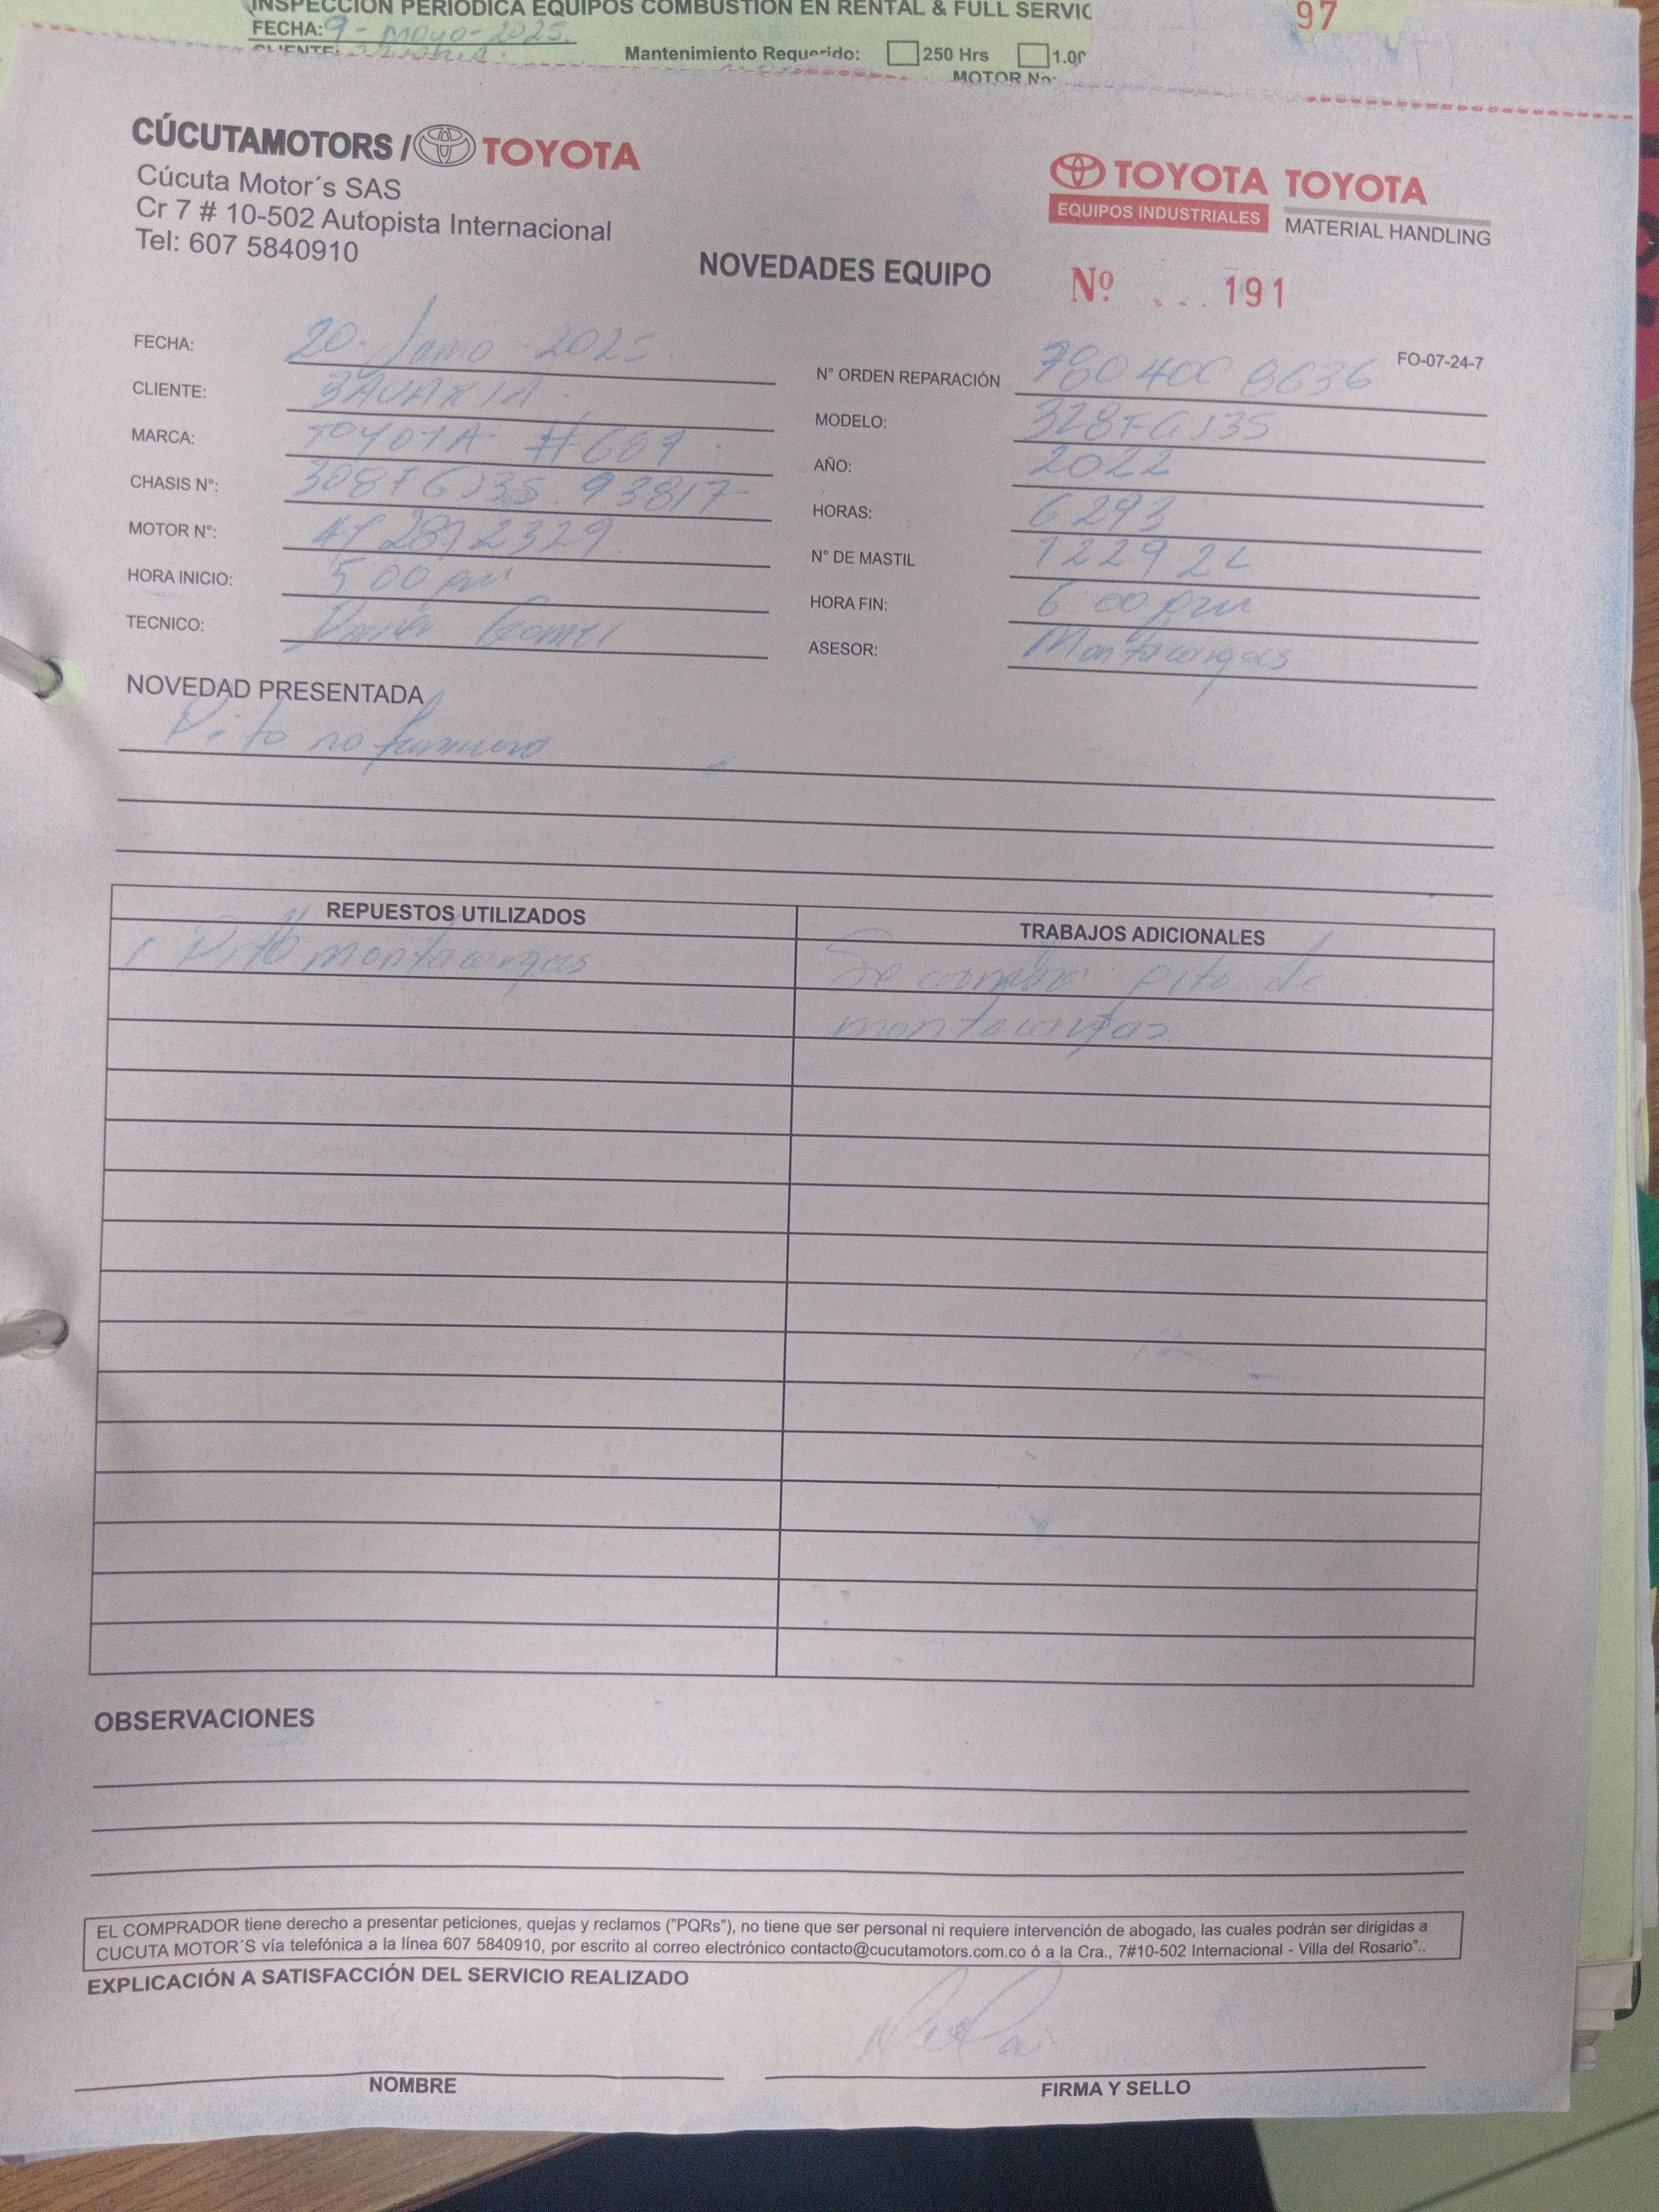 INSPECCIÓN PERIODICA EQUIPOS COMBUSTION EN RENTAL & FULL SERVIC
97
FECHA: 9 - mayo - 2025.
CLIENTE:
Mantenimiento Requerido: 250 Hrs 1.00
MOTOR No:
CÚCUTAMOTORS / TOYOTA
Cúcuta Motor´s SAS
Cr 7 # 10-502 Autopista Internacional
Tel: 607 5840910
TOYOTA EQUIPOS INDUSTRIALES
TOYOTA MATERIAL HANDLING
NOVEDADES EQUIPO
Nº 191
FO-07-24-7
FECHA: 20 - - 2025
N° ORDEN REPARACIÓN 8636
CLIENTE: BAVARIA
MODELO: 328FGJ35
MARCA: TOYOTA #607
AÑO: 2022
CHASIS N°: 308FGJ35 93817
HORAS: 6293
MOTOR N°: 2329
N° DE MASTIL
HORA INICIO: 5 00 pm
HORA FIN: 6 00 pm
TECNICO:
ASESOR: Montacargas
NOVEDAD PRESENTADA
Pito no funciona
REPUESTOS UTILIZADOS
TRABAJOS ADICIONALES
1 Pito montacargas
Se cambia pito de
montacargas
OBSERVACIONES
EL COMPRADOR tiene derecho a presentar peticiones, quejas y reclamos ("PQRs"), no tiene que ser personal ni requiere intervención de abogado, las cuales podrán ser dirigidas a
CUCUTA MOTOR´S vía telefónica a la línea 607 5840910, por escrito al correo electrónico contacto@cucutamotors.com.co ó a la Cra., 7#10-502 Internacional - Villa del Rosario"..
EXPLICACIÓN A SATISFACCIÓN DEL SERVICIO REALIZADO
NOMBRE
FIRMA Y SELLO